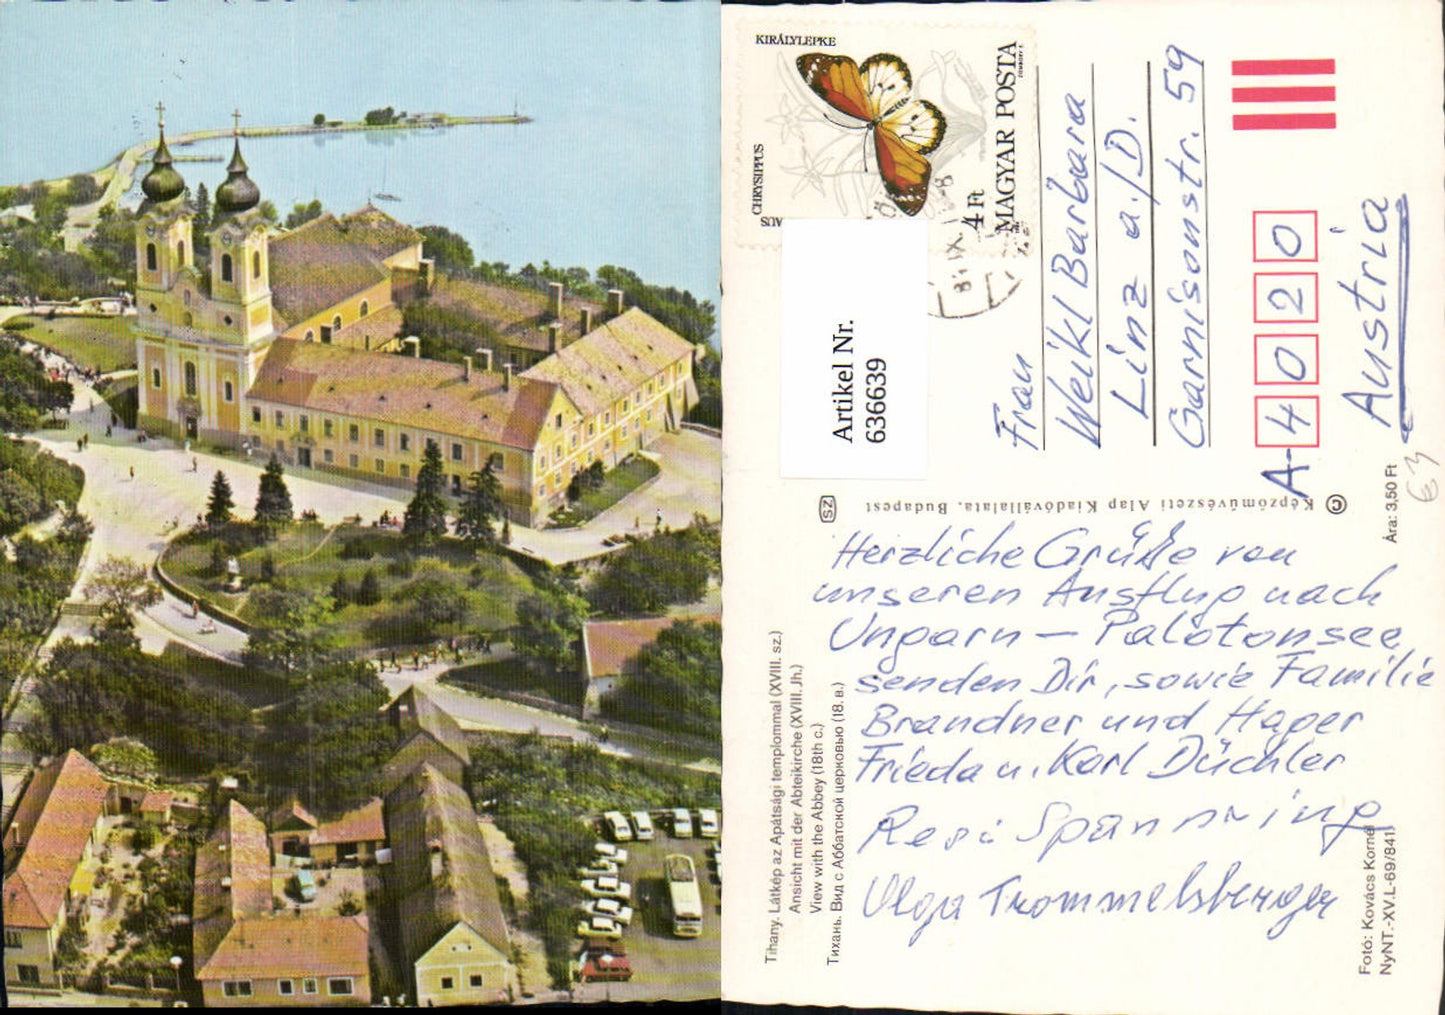 KIRÁLYLEPKE
CHRYSIPPUS
4 Ft
MAGYAR POSTA
84 IX.
Artikel Nr.
636639
Frau
Weikl Barbara
Linz a./D.
Garnisonstr. 59
A-4020
Austria
Ára: 3,50 Ft
SZ
Képzőművészeti Alap Kiadóvállalata, Budapest
©
Herzliche Grüße von
unseren Ausflug nach
Ungarn – Palotonsee
senden Dir, sowie Familie
Brandner und Hager
Frieda u. Karl Düchler
Resi Spanring
Olga Trommelsberger
Tihany. Látkép az Apátsági templommal (XVIII. sz.)
Ansicht mit der Abteikirche (XVIII. Jh.)
View with the Abbey (18th c.)
Тихань. Вид с Аббатской церковью (18. в.)
Fotó: Kovács Kornél
NyNT.-XV.L-69/841